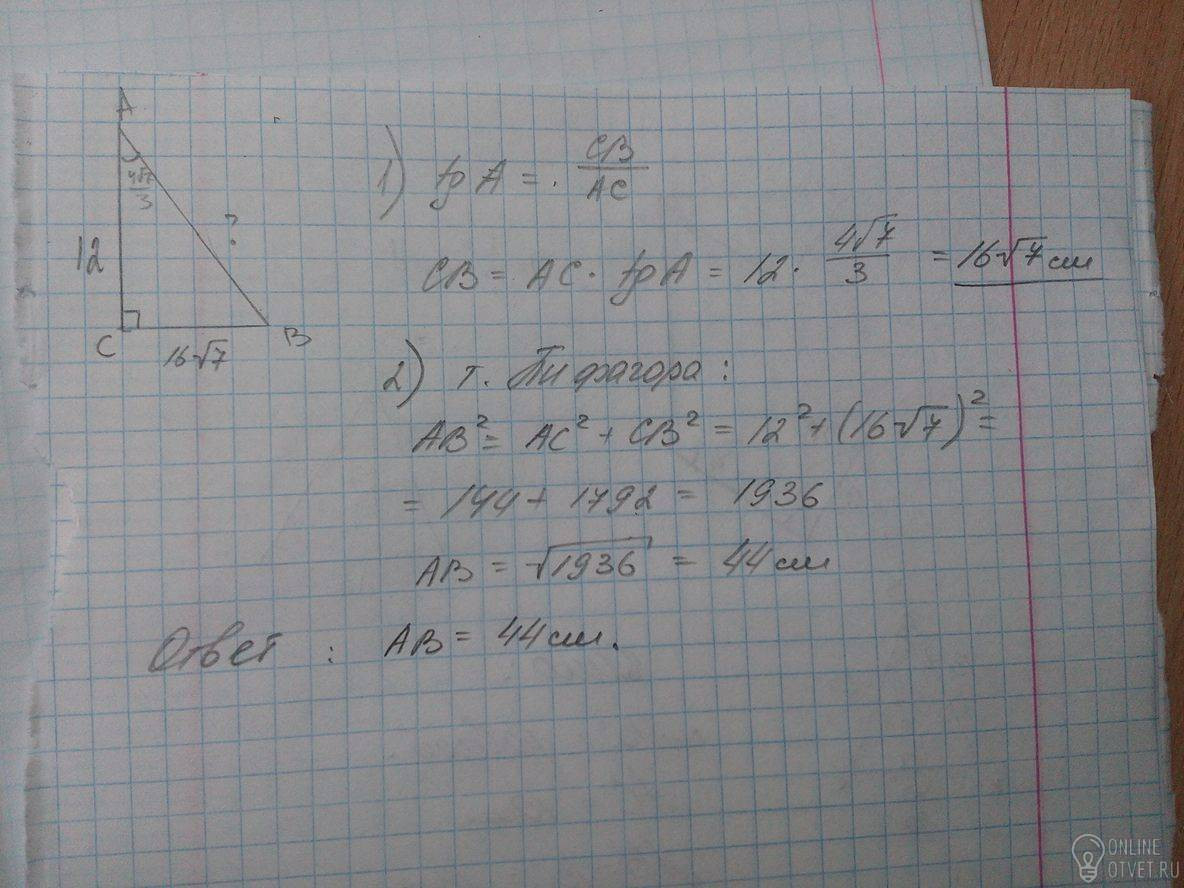 A
4√7/3
12
?
C
16√7
B
1) tg A = CB/AC
CB = AC · tg A = 12 · 4√7/3 = 16√7 см
2) т. Пифагора :
AB² = AC² + CB² = 12² + (16√7)² =
= 144 + 1792 = 1936
AB = √1936 = 44 см
Ответ : AB = 44 см.
ONLINE
OTVET.RU